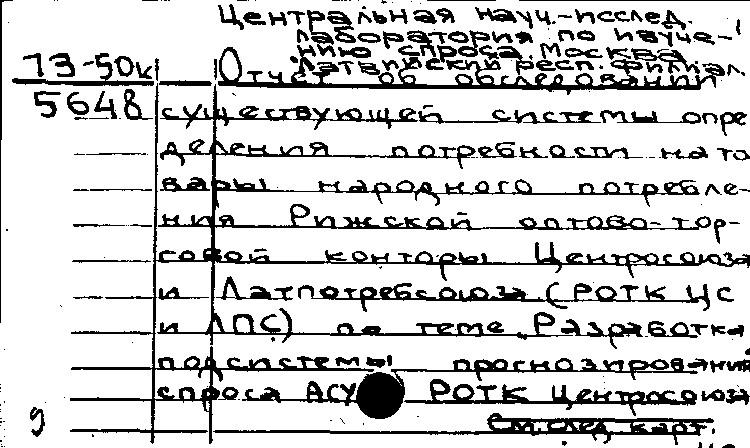 Центральная науч.-исслед.
лаборатория по изуче-
нию спроса. Москва
Латвийский респ. филиал.
73-50к Отчет об обследовании
5648 существующей системы опре
деления потребности на то
вары народного потребле-
ния Рижской оптово-тор-
говой конторы Центросоюза
и Латпотребсоюза (РОТК ЦС
и ЛПС) по теме „Разработка
подсистемы прогнозирования
спроса АСУ РОТК Центросоюза
см. след. карт.
9